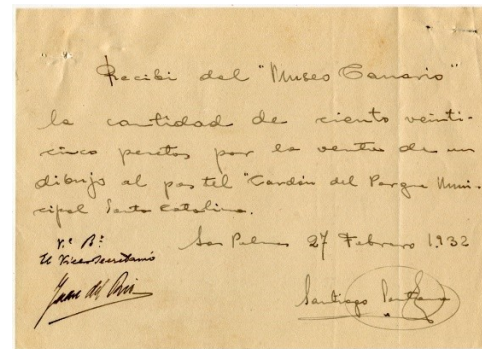 Recibi del "Museo Canario"
la cantidad de ciento veinti-
cinco pesetas por la venta de un
dibujo al pastel "Cardón del Parque Muni-
cipal Santa Catalina.
Las Palmas 27 Febrero 1.932
Vº Bº
El Vicesecretario
Juan del Río
Santiago Santana